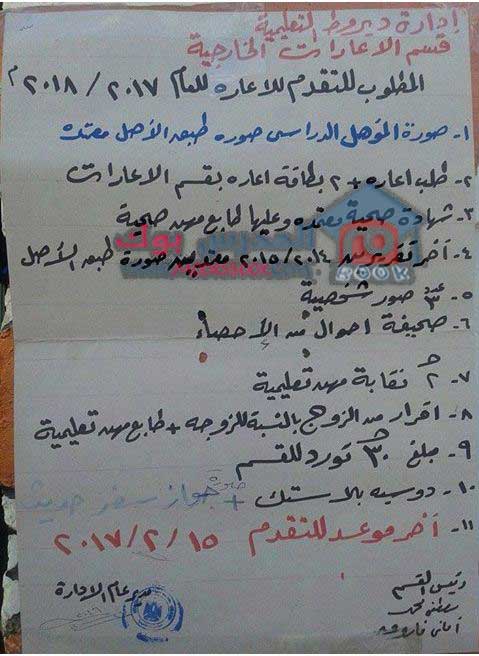 إدارة ديروط التعليمية
قسم الاعارات الخارجية
المطلوب للتقدم للاعاره للعام ٢٠١٧/٢٠١٨ م
١- صورة المؤهل الدراسى صوره طبق الأصل معتمده
٢- طلب اعاره + ٢ بطاقة اعاره بقسم الاعارات
٣- شهادة صحية معتمده وعليها طابع مهن صحية
٤- أخر تقريرين ٢٠١٤/٢٠١٥ معتمدين صورة طبق الأصل
المدرس بوك
BOOK
٥- عدد ٣ صور شخصية
٦- صحيفة احوال من الإحصاء
٧- ٢ ج نقابة مهن تعليمية
٨- اقرار من الزوج بالنسبة للزوجه + طابع مهن تعليمية
٩- مبلغ ٣٠ ج تورد للقسم
١٠- دوسيه بلاستك + صورة جواز سفر حديث
١١- أخر موعد للتقدم ٢٠١٧/٢/١٥
رئيس القسم
مدير عام الادارة